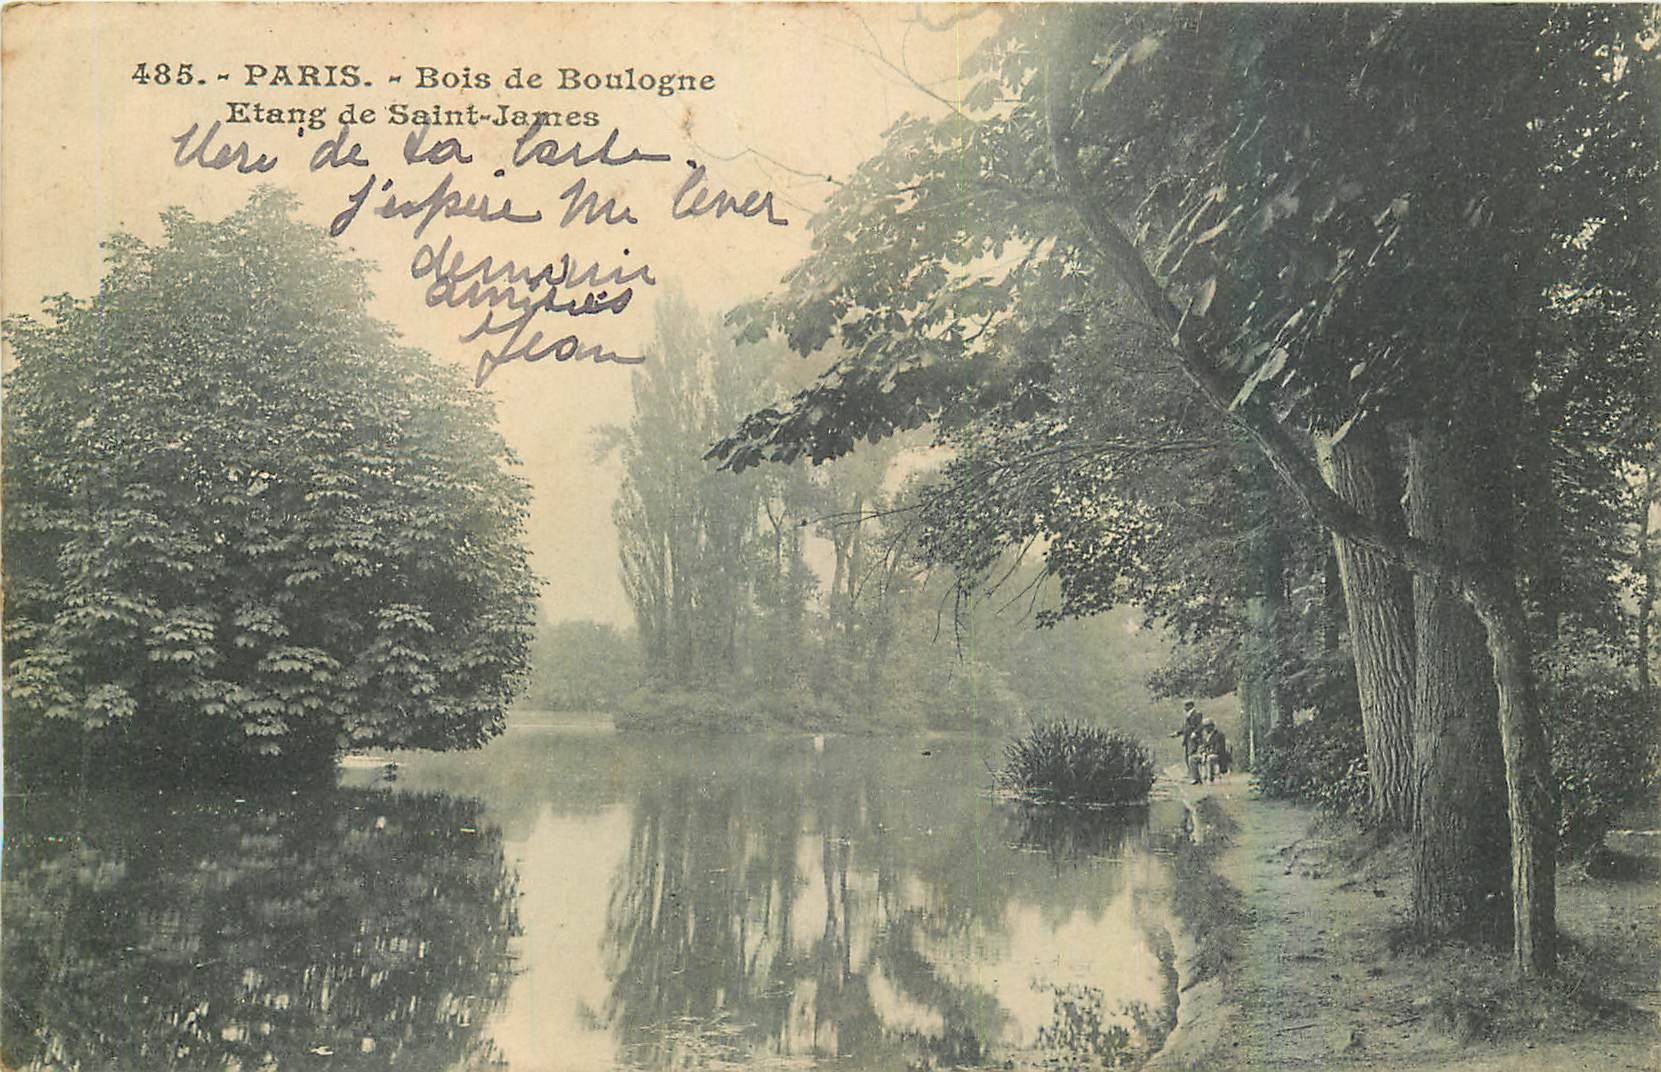 485. - PARIS. - Bois de Boulogne
Etang de Saint-James
Merci de ta carte.
J'espère me lever
demain
amitiés
Jean